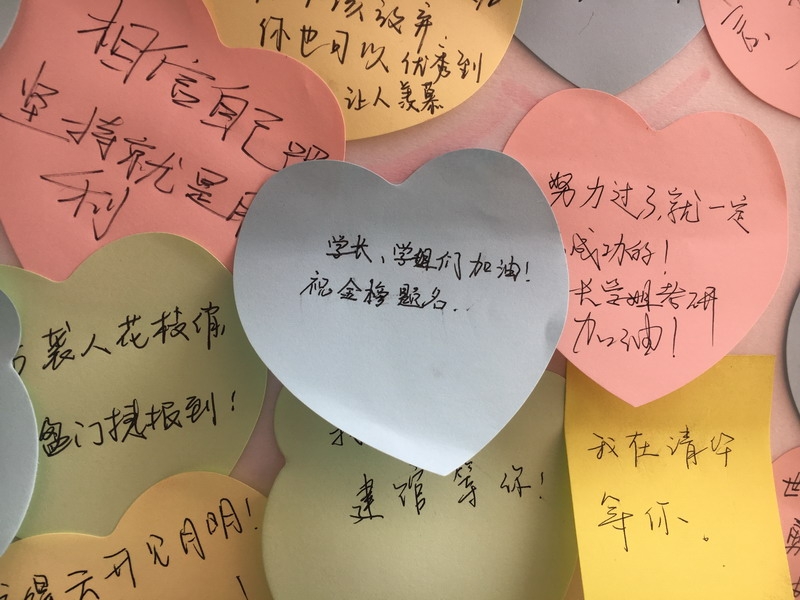 放弃
你也可以优秀到
让人羡慕
相信自己
坚持就是
利
学长、学姐们加油！
祝金榜题名..
努力过了，就一定
成功的！
长学姐考研
加油！
袭人花枝俏
门捷报到！
建馆等你！
我在清华
等你。
云开见月明！